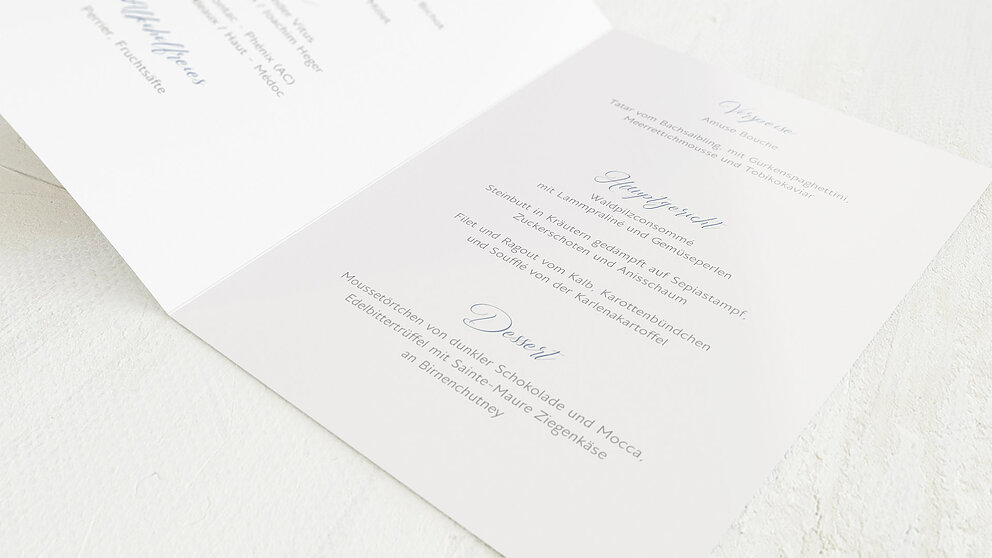 Vitus
/ Joachim Heger
- Phénix (AC)
/ Haut - Médoc
Alkoholfreies
Perrier, Fruchtsäfte
Vorspeise
Amuse Bouche
Tatar vom Bachsaibling, mit Gurkenspaghettini,
Meerrettichmousse und Tobikokaviar
Hauptgericht
Waldpilzconsommé
mit Lammpraliné und Gemüseperlen
Steinbutt in Kräutern gedämpft auf Sepiastampf,
Zuckerschoten und Anisschaum
Filet und Ragout vom Kalb, Karottenbündchen
und Soufflé von der Karlenakartoffel
Dessert
Moussetörtchen von dunkler Schokolade und Mocca,
Edelbittertrüffel mit Sainte-Maure Ziegenkäse
an Birnenchutney